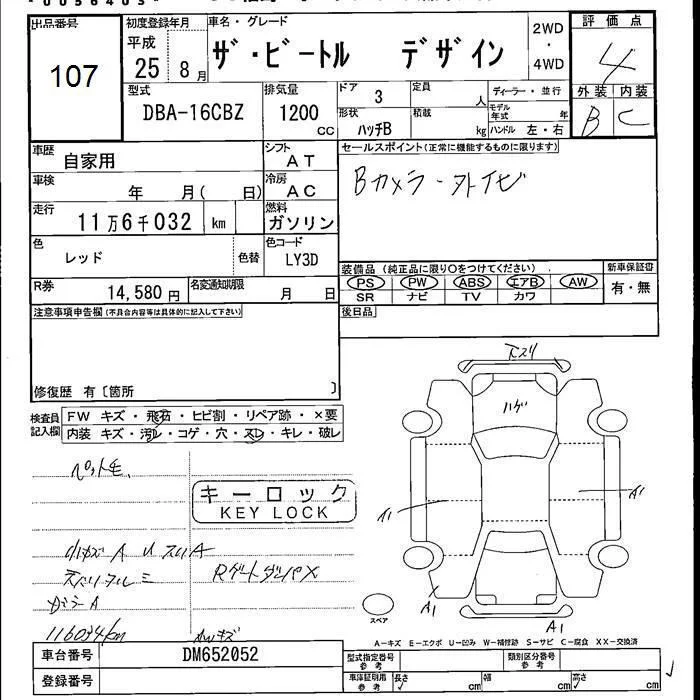 出品番号
107
初度登録年月
平成
25 8月
車名・グレード
ザ・ビートル デザイン
2WD
・
4WD
評価点
4
外装 内装
B C
型式
DBA-16CBZ
排気量
1200
cc
ドア
3
形状
ハッチB
定員
人
積載
kg
ディーラー・並行
モデル年式 年
ハンドル 左・右
車歴
自家用
シフト
AT
車検
年 月( 日)
冷房
AC
走行
11万6千032 km
燃料
ガソリン
色
レッド
色替
色コード
LY3D
R券
14,580円
名変通知期限
月 日
セールスポイント(正常に機能するものに限ります)
Bカメラ・外ナビ
装備品(純正品に限り〇をつけてください)
PS PW ABS エアB AW
SR ナビ TV カワ
新車保証書
有・無
後日品
注意事項申告欄(不具合内容等は具体的に記入して下さい)
修復歴 有〔箇所 〕
検査員記入欄
FW キズ・飛石・ヒビ割・リペア跡・×要
内装 キズ・汚レ・コゲ・穴・スレ・キレ・破レ
ペット毛
キーロック
KEY LOCK
小キズA Uスリ A
RゲートダンパX
ガラA
116034km
AWキズ
下スリ
ハゲ
A1
A1
A1
A1
スペア
A-キズ E-エクボ U-凹み W-補修跡 S-サビ C-腐食 XX-交換済
車台番号
DM652052
登録番号
型式指定番号
参考
類別区分番号
参考
車庫証明用
参考
長さ cm 幅 cm 高さ cm